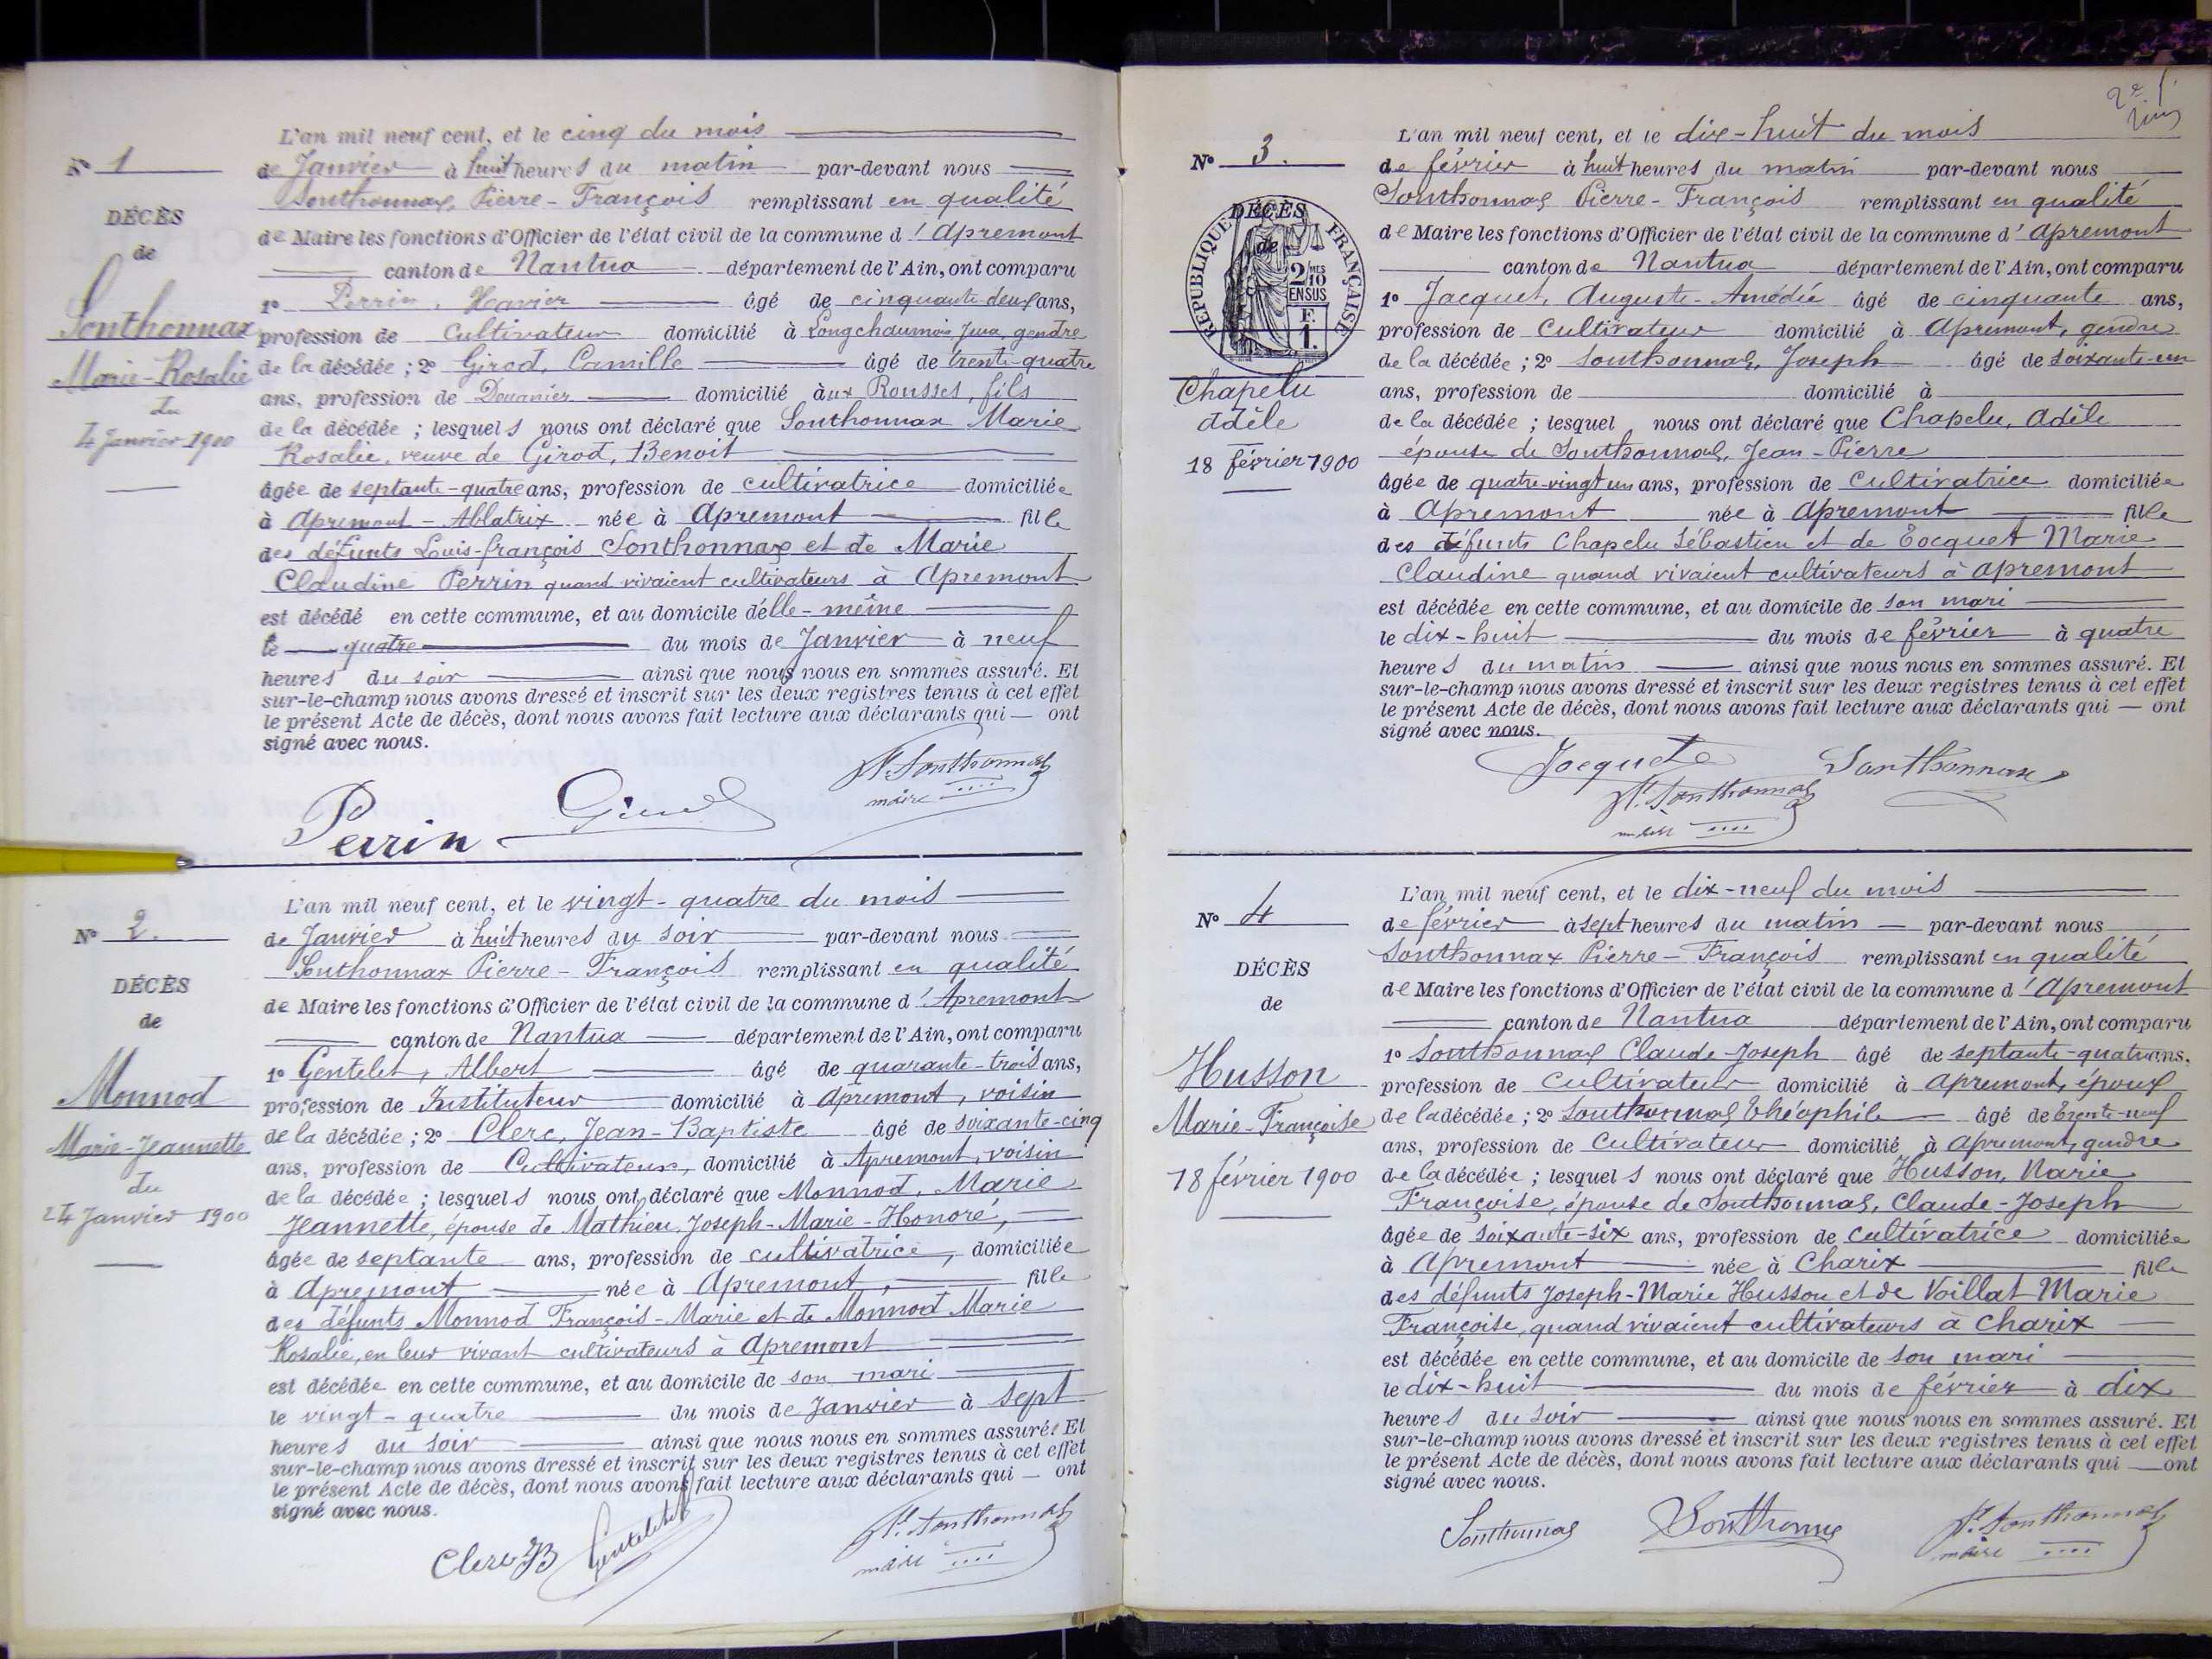 L'an mil neuf cent, et le cinq du mois
N° 1
de Janvier à huit heures du matin par-devant nous
Sonthonnax, Pierre-François remplissant en qualité
DÉCÈS
de Maire les fonctions d'Officier de l'état civil de la commune d'Apremont
de
canton de Nantua département de l'Ain, ont comparu
1° Perrin, Xavier âgé de cinquante-deux ans,
Sonthonnax
profession de Cultivateur domicilié à Longchaumois Jura, gendre
Marie-Rosalie
de la décédée ; 2° Girod, Camille âgé de trente-quatre
du
ans, profession de Douanier domicilié aux Rousses, fils
4 Janvier 1900
de la décédée ; lesquels nous ont déclaré que Sonthonnax Marie
Rosalie, veuve de Girod, Benoit
âgée de septante-quatre ans, profession de cultivatrice domiciliée
à Apremont - Ablatrix née à Apremont fille
des défunts Louis-françois Sonthonnax et de Marie
Claudine Perrin quand vivaient cultivateurs à Apremont
est décédé en cette commune, et au domicile d'elle-même
le quatre du mois de Janvier à neuf
heures du soir ainsi que nous nous en sommes assuré. Et
sur-le-champ nous avons dressé et inscrit sur les deux registres tenus à cet effet
le présent Acte de décès, dont nous avons fait lecture aux déclarants qui — ont
signé avec nous.
Perrin Girod Pre Sonthonnax
maire
L'an mil neuf cent, et le vingt-quatre du mois
N° 2.
de Janvier à huit heures du soir par-devant nous
Sonthonnax Pierre-François remplissant en qualité
DÉCÈS
de Maire les fonctions d'Officier de l'état civil de la commune d'Apremont
de
canton de Nantua département de l'Ain, ont comparu
1° Gentelet, Albert âgé de quarante-trois ans,
Monnod
profession de Instituteur domicilié à Apremont, voisin
Marie-Jeannette
de la décédée ; 2° Clerc, Jean-Baptiste âgé de soixante-cinq
du
ans, profession de Cultivateur, domicilié à Apremont, voisin
24 Janvier 1900
de la décédée ; lesquels nous ont déclaré que Monnod, Marie
Jeannette, épouse de Mathieu, Joseph-Marie-Honoré,
âgée de septante ans, profession de cultivatrice, domiciliée
à Apremont née à Apremont, fille
des défunts Monnod François-Marie et de Monnod Marie
Rosalie, en leur vivant cultivateurs à Apremont
est décédée en cette commune, et au domicile de son mari
le vingt-quatre du mois de Janvier à sept
heures du soir ainsi que nous nous en sommes assuré. Et
sur-le-champ nous avons dressé et inscrit sur les deux registres tenus à cet effet
le présent Acte de décès, dont nous avons fait lecture aux déclarants qui — ont
signé avec nous.
Clerc JB Gentelet Pre Sonthonnax
maire
2e f.
L'an mil neuf cent, et le dix-huit du mois
N° 3.
de février à huit heures du matin par-devant nous
Sonthonnax Pierre-François remplissant en qualité
DÉCÈS
de
RÉPUBLIQUE FRANÇAISE
2/10 MES
EN SUS
F.
1.
de Maire les fonctions d'Officier de l'état civil de la commune d'Apremont
canton de Nantua département de l'Ain, ont comparu
1° Jacquet, Auguste-Amédée âgé de cinquante ans,
profession de Cultivateur domicilié à Apremont, gendre
de la décédée ; 2° Sonthonnax, Joseph âgé de soixante-un
Chapelu
ans, profession de domicilié à
Adèle
de la décédée ; lesquel nous ont déclaré que Chapelu, Adèle
18 février 1900
épouse de Sonthonnax, Jean-Pierre
âgée de quatre-vingt un ans, profession de Cultivatrice domiciliée
à Apremont née à Apremont fille
des défunts Chapelu Sébastien et de Tocquet Marie
Claudine quand vivaient cultivateurs à Apremont
est décédée en cette commune, et au domicile de son mari
le dix-huit du mois de février à quatre
heures du matin ainsi que nous nous en sommes assuré. Et
sur-le-champ nous avons dressé et inscrit sur les deux registres tenus à cet effet
le présent Acte de décès, dont nous avons fait lecture aux déclarants qui — ont
signé avec nous.
Jacquet Sonthonnax
Pre Sonthonnax
maire
L'an mil neuf cent, et le dix-neuf du mois
N° 4
de février à sept heures du matin par-devant nous
Sonthonnax Pierre-François remplissant en qualité
DÉCÈS
de Maire les fonctions d'Officier de l'état civil de la commune d'Apremont
de
canton de Nantua département de l'Ain, ont comparu
1° Sonthonnax Claude-Joseph âgé de septante-quatre ans,
Husson
profession de Cultivateur domicilié à Apremont, époux
Marie-Françoise
de la décédée ; 2° Sonthonnax Théophile âgé de trente-neuf
ans, profession de Cultivateur domicilié à Apremont, gendre
18 février 1900
de la décédée ; lesquels nous ont déclaré que Husson, Marie
Françoise, épouse de Sonthonnax, Claude-Joseph
âgée de soixante-six ans, profession de cultivatrice domiciliée
à Apremont née à Charix fille
des défunts Joseph-Marie Husson et de Voillat Marie
Françoise, quand vivaient cultivateurs à Charix
est décédée en cette commune, et au domicile de son mari
le dix-huit du mois de février à dix
heures du soir ainsi que nous nous en sommes assuré. Et
sur-le-champ nous avons dressé et inscrit sur les deux registres tenus à cet effet
le présent Acte de décès, dont nous avons fait lecture aux déclarants qui — ont
signé avec nous.
Sonthonnax Sonthonnax Pre Sonthonnax
maire